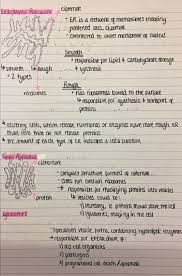 Endoplasmic Reticulum
cisternae
• ER is a network of membranes enclosing
flattened sacs, cisternae
• connected to outer membrane of nucleus
Smooth
• responsible for lipid & carbohydrate storage
& synthesis
smooth rough
- 2 types
Rough
• has ribosomes bound to the surface
ribosomes
• responsible for synthesis & transport of
proteins
• secretory cells, which release hormones or enzymes have more rough ER
than cells that do not release proteins
• the amount of each type of ER indicates a cell function
Golgi Apparatus
cisternae
• compact structure formed of cisternae
• does not contain ribosomes
• responsible for modifying proteins into vesicles
protein
• vesicles could be:
1) secretory, ie proteins leave the cell
2) lysosomes, stay in the cell
Lysosomes
• specialised vesicle forms, containing hydrolytic enzymes
• responsible for breaking down of:
1) old cell organelles
2) pathogens
3) programmed cell death/apoptosis